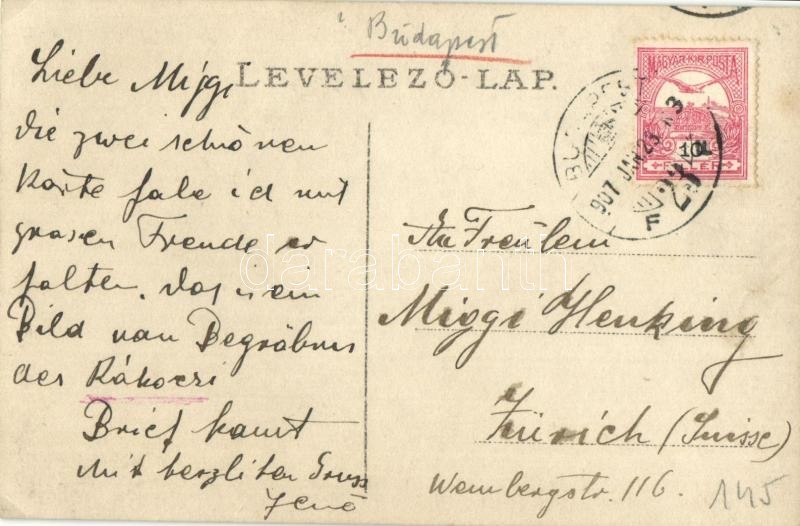 Budapest
LEVELEZŐ-LAP.
MAGYAR KIR. POSTA
10
FILLÉR
BUDAPEST
907 JAN 23
F
23
Liebe Miggi
die zwei schönen
Karte habe ich mit
grosen Freude er
halten. Das is ein
Bild von Begräbnis
des Rákoczi
Brief komt
Mit herzlichen Gruss
Jenő
An Freulein
Miggi Henking
Zürich (Suisse)
Weinbergstr. 116.
145
darabanth